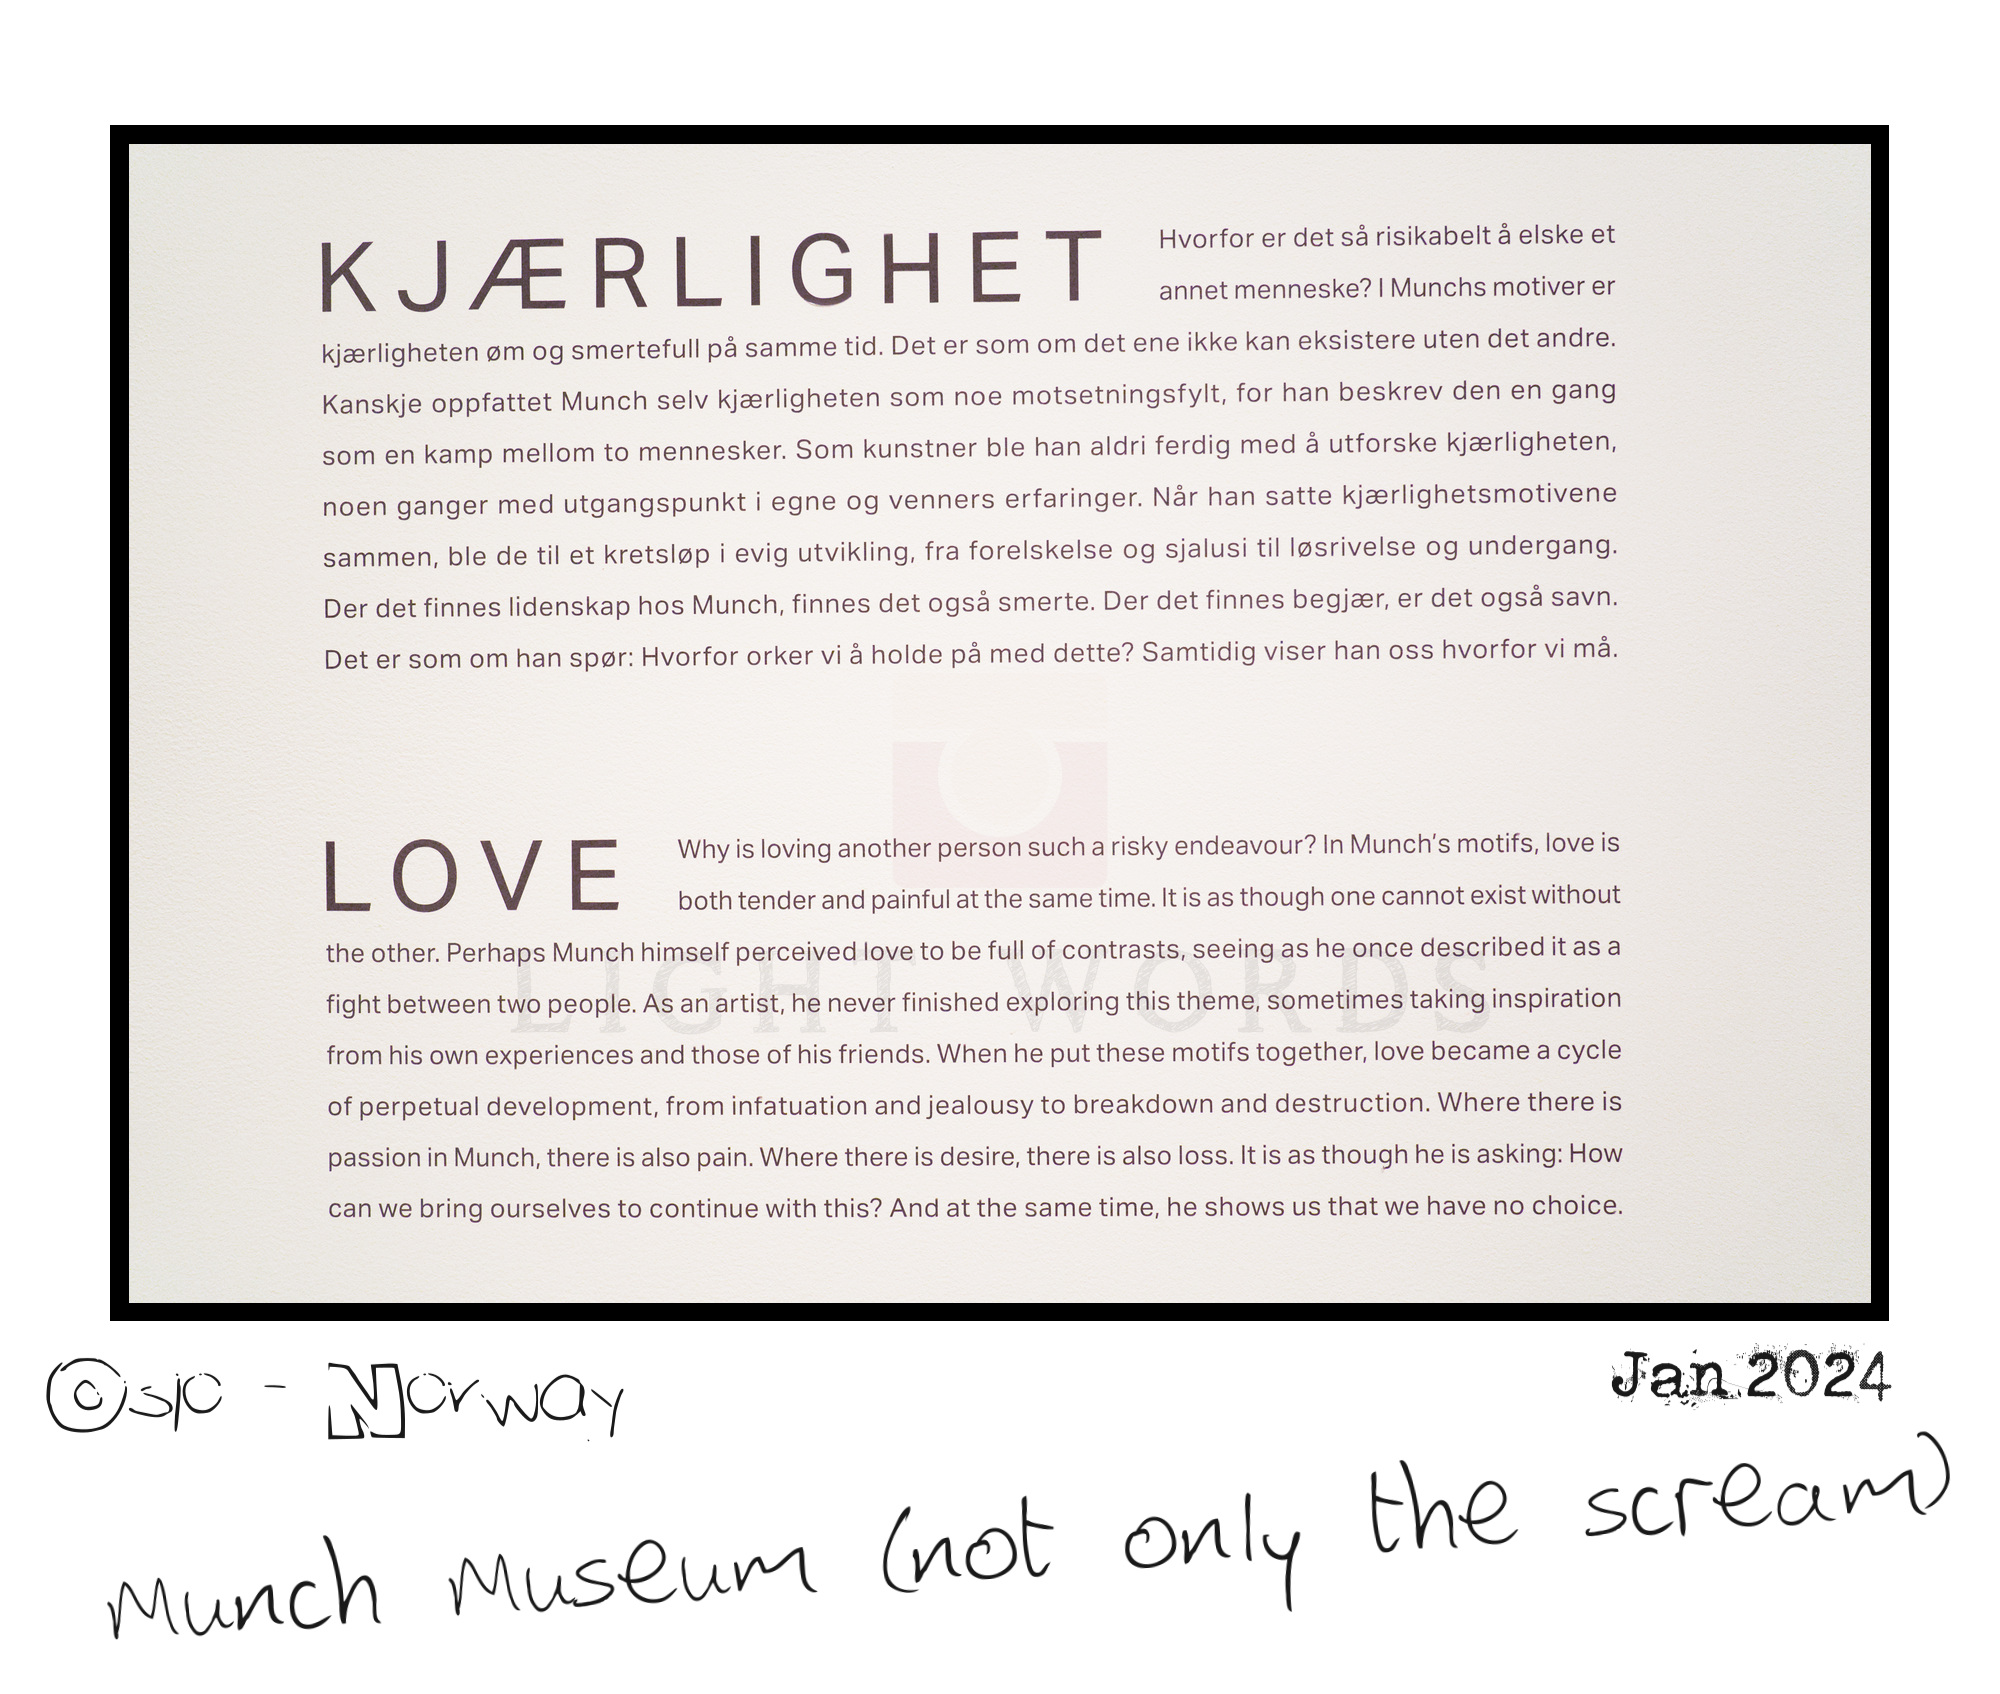 KJÆRLIGHET Hvorfor er det så risikabelt å elske et
annet menneske? I Munchs motiver er
kjærligheten øm og smertefull på samme tid. Det er som om det ene ikke kan eksistere uten det andre.
Kanskje oppfattet Munch selv kjærligheten som noe motsetningsfylt, for han beskrev den en gang
som en kamp mellom to mennesker. Som kunstner ble han aldri ferdig med å utforske kjærligheten,
noen ganger med utgangspunkt i egne og venners erfaringer. Når han satte kjærlighetsmotivene
sammen, ble de til et kretsløp i evig utvikling, fra forelskelse og sjalusi til løsrivelse og undergang.
Der det finnes lidenskap hos Munch, finnes det også smerte. Der det finnes begjær, er det også savn.
Det er som om han spør: Hvorfor orker vi å holde på med dette? Samtidig viser han oss hvorfor vi må.
LOVE Why is loving another person such a risky endeavour? In Munch's motifs, love is
both tender and painful at the same time. It is as though one cannot exist without
the other. Perhaps Munch himself perceived love to be full of contrasts, seeing as he once described it as a
LIGHT WORDS
fight between two people. As an artist, he never finished exploring this theme, sometimes taking inspiration
from his own experiences and those of his friends. When he put these motifs together, love became a cycle
of perpetual development, from infatuation and jealousy to breakdown and destruction. Where there is
passion in Munch, there is also pain. Where there is desire, there is also loss. It is as though he is asking: How
can we bring ourselves to continue with this? And at the same time, he shows us that we have no choice.
Oslo - Norway
Jan 2024
Munch Museum (not only the scream)